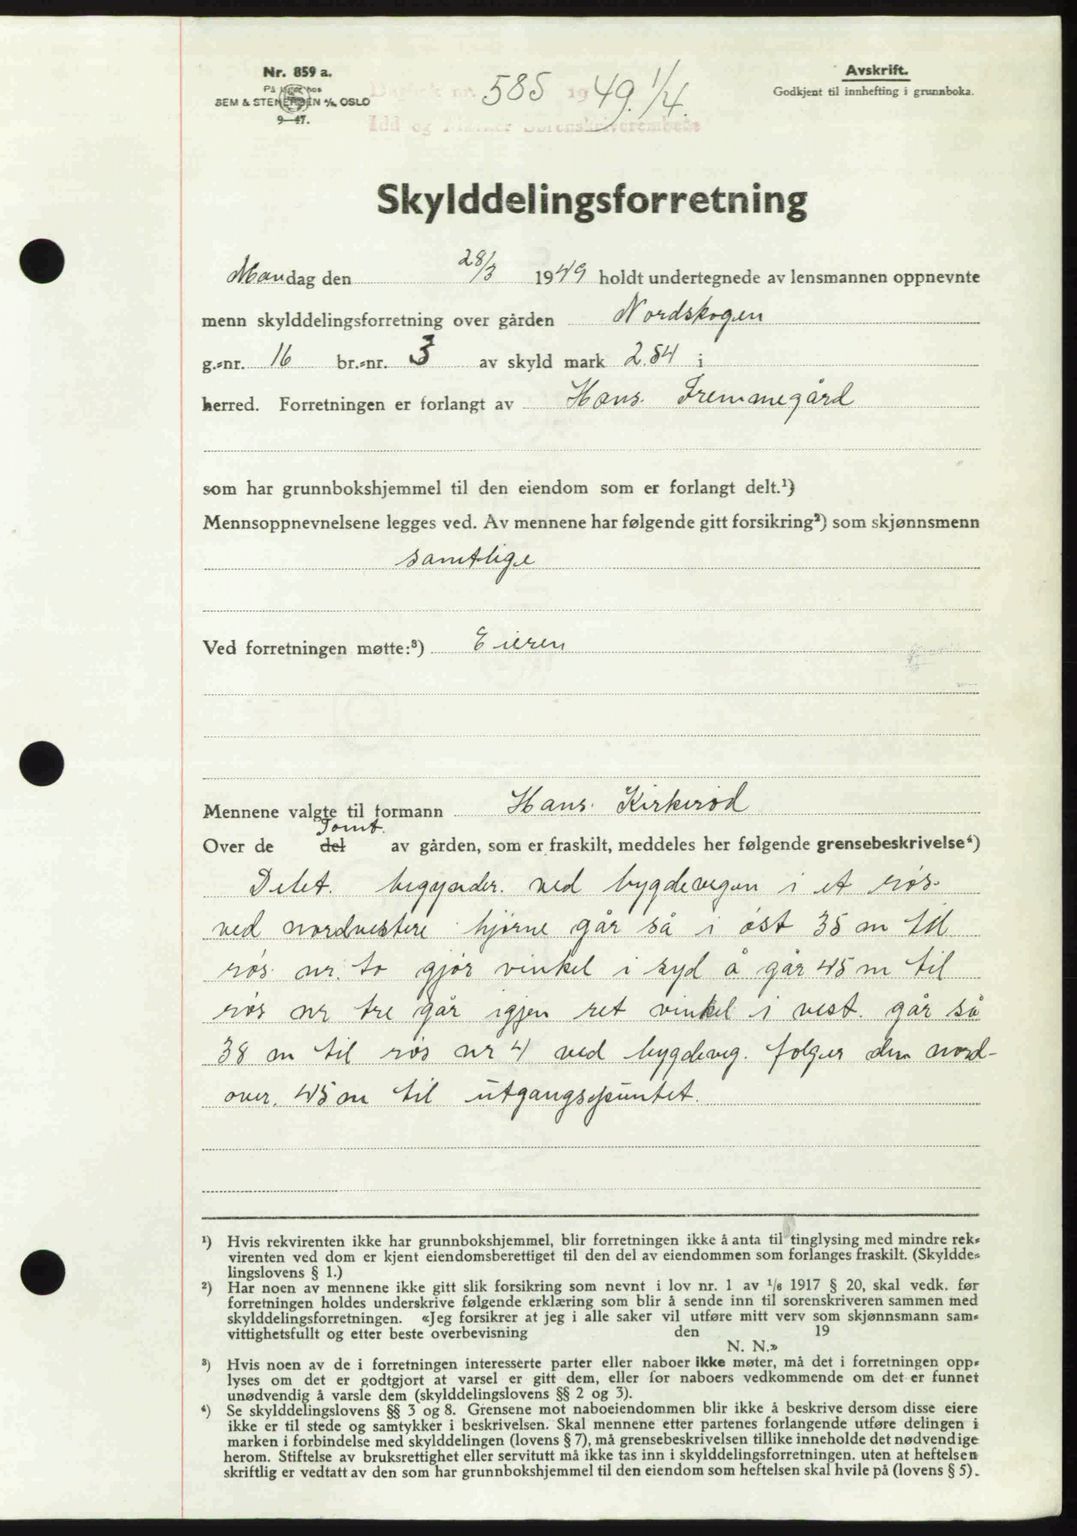 Nr. 859 a.
På lager hos
SEM & STENERSEN A/S, OSLO
9-47.
Dagbok nr. 585 1949. 1/4.
Idd og Marker Sorenskriverembede
Avskrift.
Godkjent til innhefting i grunnboka.
Skylddelingsforretning
Mandag den 28/3 1949 holdt undertegnede av lensmannen oppnevnte
menn skylddelingsforretning over gården Nordskogen
g.-nr. 16 br.-nr. 3 av skyld mark 2.54 i
herred. Forretningen er forlangt av Hans Fremmegård
som har grunnbokshjemmel til den eiendom som er forlangt delt.¹)
Mennsoppnevnelsene legges ved. Av mennene har følgende gitt forsikring²) som skjønnsmenn
samtlige
Ved forretningen møtte:³) Eieren
Mennene valgte til formann Hans Kirkerød
Tomt.
Over de del av gården, som er fraskilt, meddeles her følgende grensebeskrivelse⁴)
Delet. begynder. ved bygdevegen i et røs.
ved nordvestere hjørne går så i øst 35 m til
røs nr. to gjør vinkel i syd å går 45 m til
røs nr tre går igjen ret vinkel i vest. går så
38 m til røs nr 4 ved bygdeveg. følger den nord-
over. 45 m til utgangspuntet.
¹) Hvis rekvirenten ikke har grunnbokshjemmel, blir forretningen ikke å anta til tinglysing med mindre rek-
virenten ved dom er kjent eiendomsberettiget til den del av eiendommen som forlanges fraskilt. (Skyldde-
lingslovens § 1.)
²) Har noen av mennene ikke gitt slik forsikring som nevnt i lov nr. 1 av 1/6 1917 § 20, skal vedk. før
forretningen holdes underskrive følgende erklæring som blir å sende inn til sorenskriveren sammen med
skylddelingsforretningen. «Jeg forsikrer at jeg i alle saker vil utføre mitt verv som skjønnsmann sam-
vittighetsfullt og etter beste overbevisning den 19
N. N.»
³) Hvis noen av de i forretningen interesserte parter eller naboer ikke møter, må det i forretningen opp-
lyses om det er godtgjort at varsel er gitt dem, eller for naboers vedkommende om det er funnet
unødvendig å varsle dem (skylddelingslovens §§ 2 og 3).
⁴) Se skylddelingslovens §§ 3 og 8. Grensene mot naboeiendommen blir ikke å beskrive dersom disse eiere
ikke er til stede og samtykker i beskrivelsen. Skal mennene etter partenes forlangende utføre delingen i
marken i forbindelse med skylddelingen (lovens § 7), må grensebeskrivelsen tillike inneholde det nødvendige
herom. Stiftelse av bruksrettighet eller servitutt må ikke tas inn i skylddelingsforretningen, uten at heftelsen
skriftlig er vedtatt av den som har grunnbokshjemmel til den eiendom som heftelsen skal hvile på (lovens § 5).